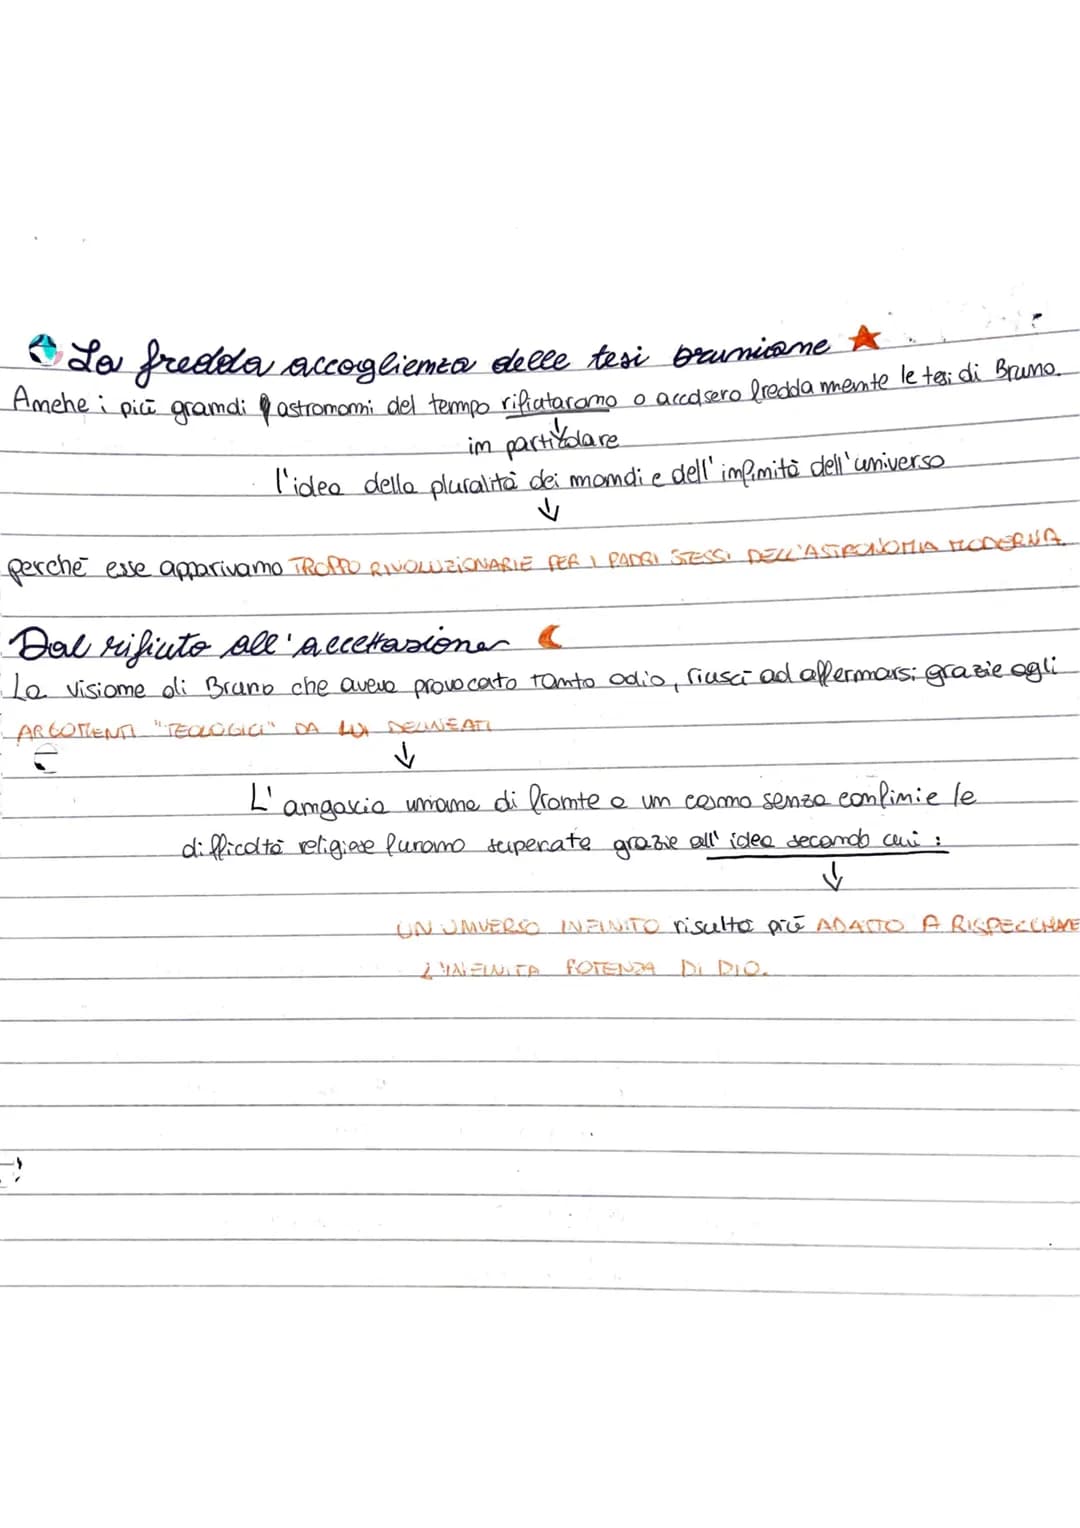 La fredda accoglienza delle tesi bruniane
Anche i più grandi astronomi del tempo rifiutarono o accolsero freddamente le tesi di Bruno.
in particolare
l'idea della pluralità dei mondi e dell'infinità dell'universo
perchè esse apparivano TROPPO RIVOLUZIONARIE PER I PADRI STESSI DELL'ASTRONOMIA MODERNA
Dal rifiuto all'accettazione
La visione di Bruno che aveva provocato tanto odio, riuscì ad affermarsi grazie agli
ARGOMENTI "TEOLOGICI" DA LUI DELINEATI
L'angoscia umana di fronte a un cosmo senza confini e le
difficoltà religiose furono superate grazie all'idea secondo cui :
UN UNIVERSO INFINITO risulta più ADATTO A RISPECCHIARE
L'INFINITA POTENZA DI DIO.